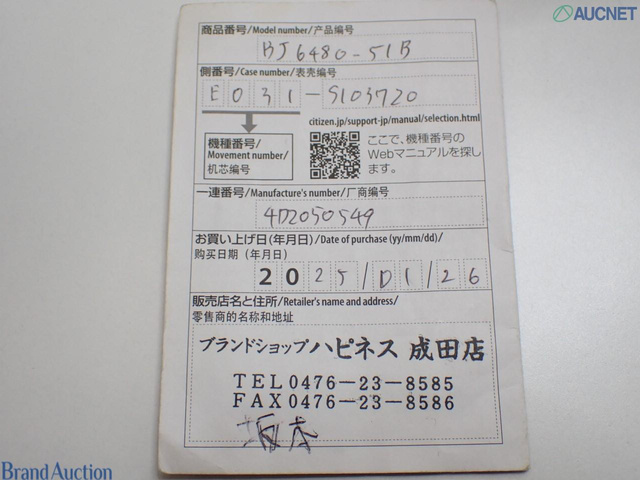 AUCNET
商品番号/Model number/产品编号
BJ6480-51B
側番号/Case number/表壳编号
E031-S103720
citizen.jp/support-jp/manual/selection.html
機種番号/
Movement number/
机芯编号
ここで、機種番号の
Webマニュアルを探し
ます。
一連番号/Manufacture's number/厂商编号
4D2050549
お買い上げ日(年月日)/Date of purchase (yy/mm/dd)/
购买日期(年月日)
2025/01/26
販売店名と住所/Retailer's name and address/
零售商的名称和地址
ブランドショップハピネス 成田店
TEL0476-23-8585
FAX0476-23-8586
坂本
Brand Auction